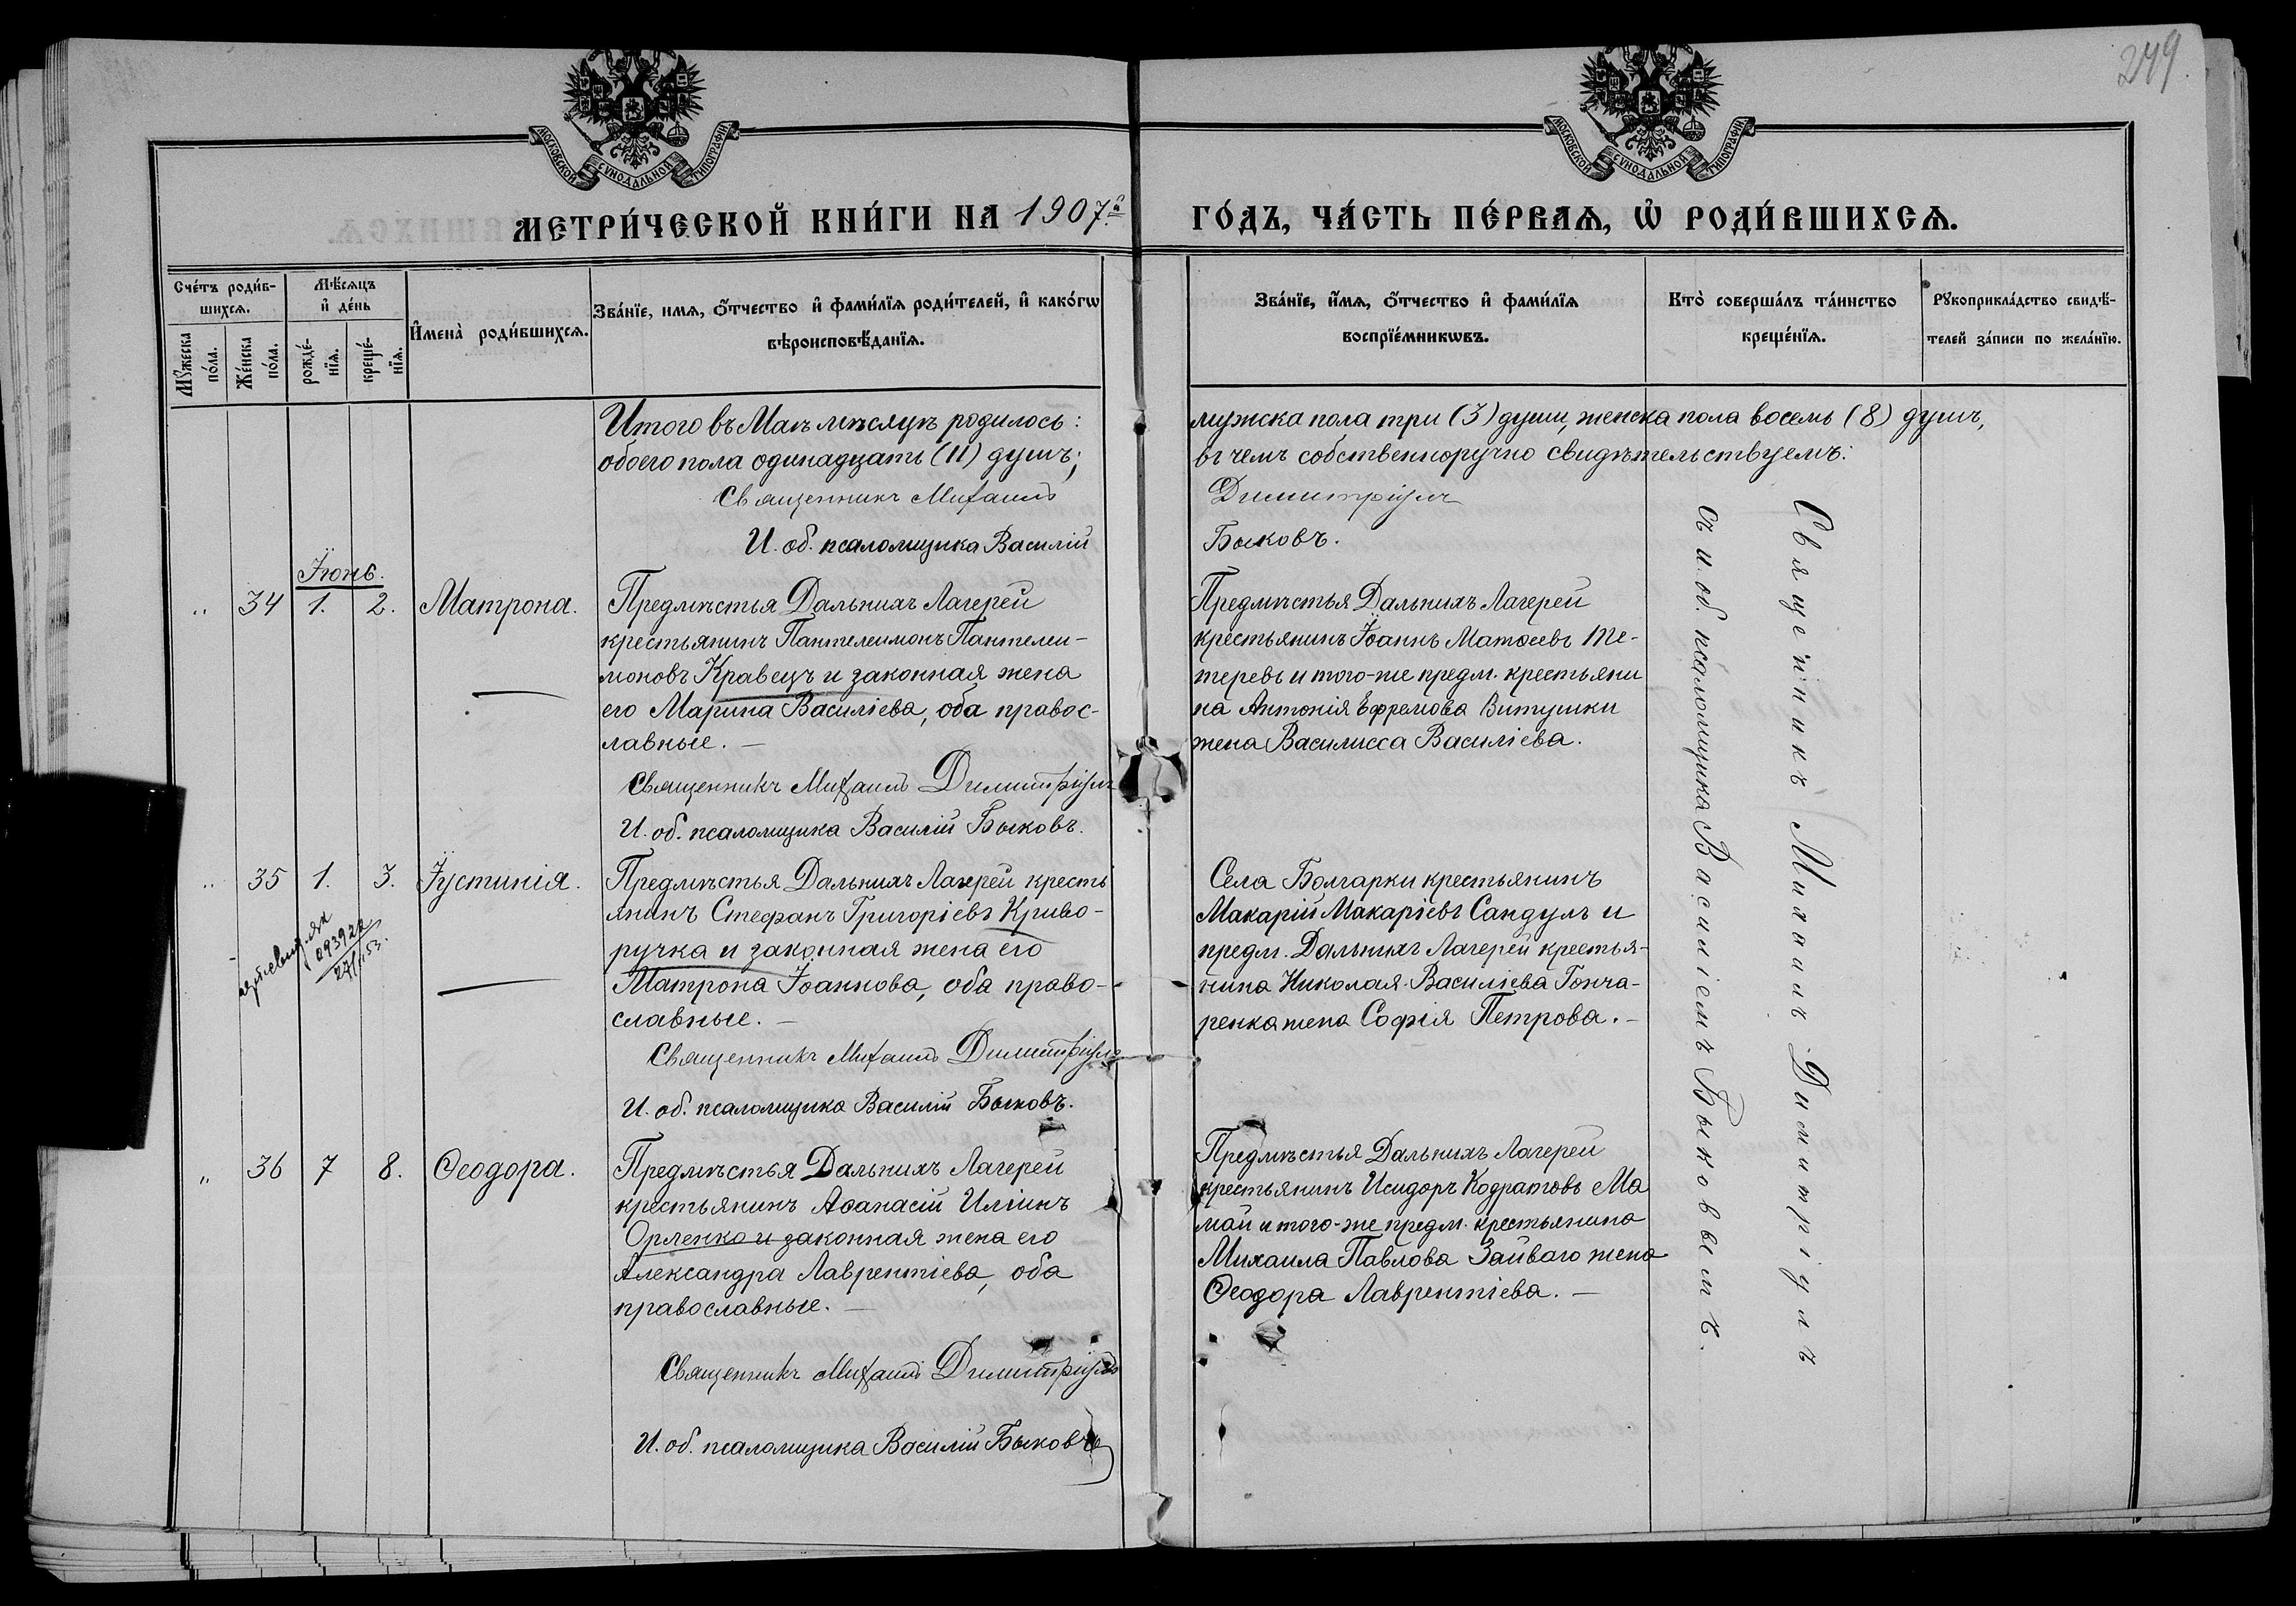 249.
МОСКОВСКОЙ СУНОДАЛЬНОЙ ТИПОГРАФІИ
МОСКОВСКОЙ СУНОДАЛЬНОЙ ТИПОГРАФІИ
МЕТРИ́ЧЕСКОЙ КНИ́ГИ НА 1907й
ГО́ДЪ, ЧА́СТЬ ПЕ́РВАѦ, Ѡ҆ РОДИ́ВШИХСѦ.
Сче́тъ роди́в-
шихсѧ.
Мꙋ́жеска
по́ла.
Же́нска
по́ла.
Мѣ́сѧцъ
и҆ де́нь
рожде́-
нїѧ.
креще́-
нїѧ.
И҆мена̀ роди́вшихсѧ.
Зва́нїе, имѧ, ѻ҆́тчество и҆ фами́лїѧ роди́телей, и҆ како́гѡ
вѣроисповѣ́данїѧ.
Зва́нїе, и҆́мѧ, ѻ҆́тчество и҆ фами́лїѧ
воспрїе́мникѡвъ.
Кто̀ соверша́лъ та́инство
креще́нїѧ.
Рꙋкоприкла́дство свидѣ́-
телей за́писи по жела́нїю.
Итого въ Маѣ мѣсяцѣ родилось:
обоего пола одинадцать (11) душъ;
Священникъ Михаилъ
И. об. псаломщика Василій
мужска пола три (3) души, женска пола восемь (8) душъ,
въ чемъ собственноручно свидѣтельствуемъ:
Димитріуxъ
Быковъ.
Іюнь.
„ 34 1. 2. Матрона.
Предмѣстья Дальнихъ Лагерей
крестьянинъ Пантелеимонъ Пантелеи-
моновъ Кравецъ и законная жена
его Марина Василіева, оба правос-
лавные. —
Священникъ Михаилъ
И. об. псаломщика Василій Быковъ.
Предмѣстья Дальнихъ Лагерей
крестьянинъ Іоаннъ Матѳеевъ Те-
теревъ и того-же предм. крестьяни
на Антонія Ефремова Витушки
жена Василисса Василіева.
„ 35 1. 3. Іустинія.
093922
27/ 53.
Предмѣстья Дальнихъ Лагерей кресть
янинъ Стефанъ Григоріевъ Криво-
ручка и законная жена его
Матрона Іоаннова, оба право-
славные. —
Священникъ Михаилъ
И. об. псаломщика Василій Быковъ.
Села Болгарки крестьянинъ
Макарій Макаріевъ Сандулъ и
предм. Дальнихъ Лагерей крестья-
нина Николая Василіева Гонча-
ренка жена Софія Петрова. —
„ 36 7 8. Ѳеодора.
Предмѣстья Дальнихъ Лагерей
крестьянинъ Аѳанасій Иліинъ
Орленко и законная жена его
Александра Лаврентіева, оба
православные. —
Священникъ Михаилъ
И. об. псаломщика Василій Быковъ
Предмѣстья Дальнихъ Лагерей
крестьянинъ Исидоръ Кодратовъ Ма
май и того-же предм. крестьянина
Михаила Павлова Зайваго жена
Ѳеодора Лаврентіева. —
Священникъ Михаилъ
съ и. об. псаломщика Василіемъ Быковымъ.